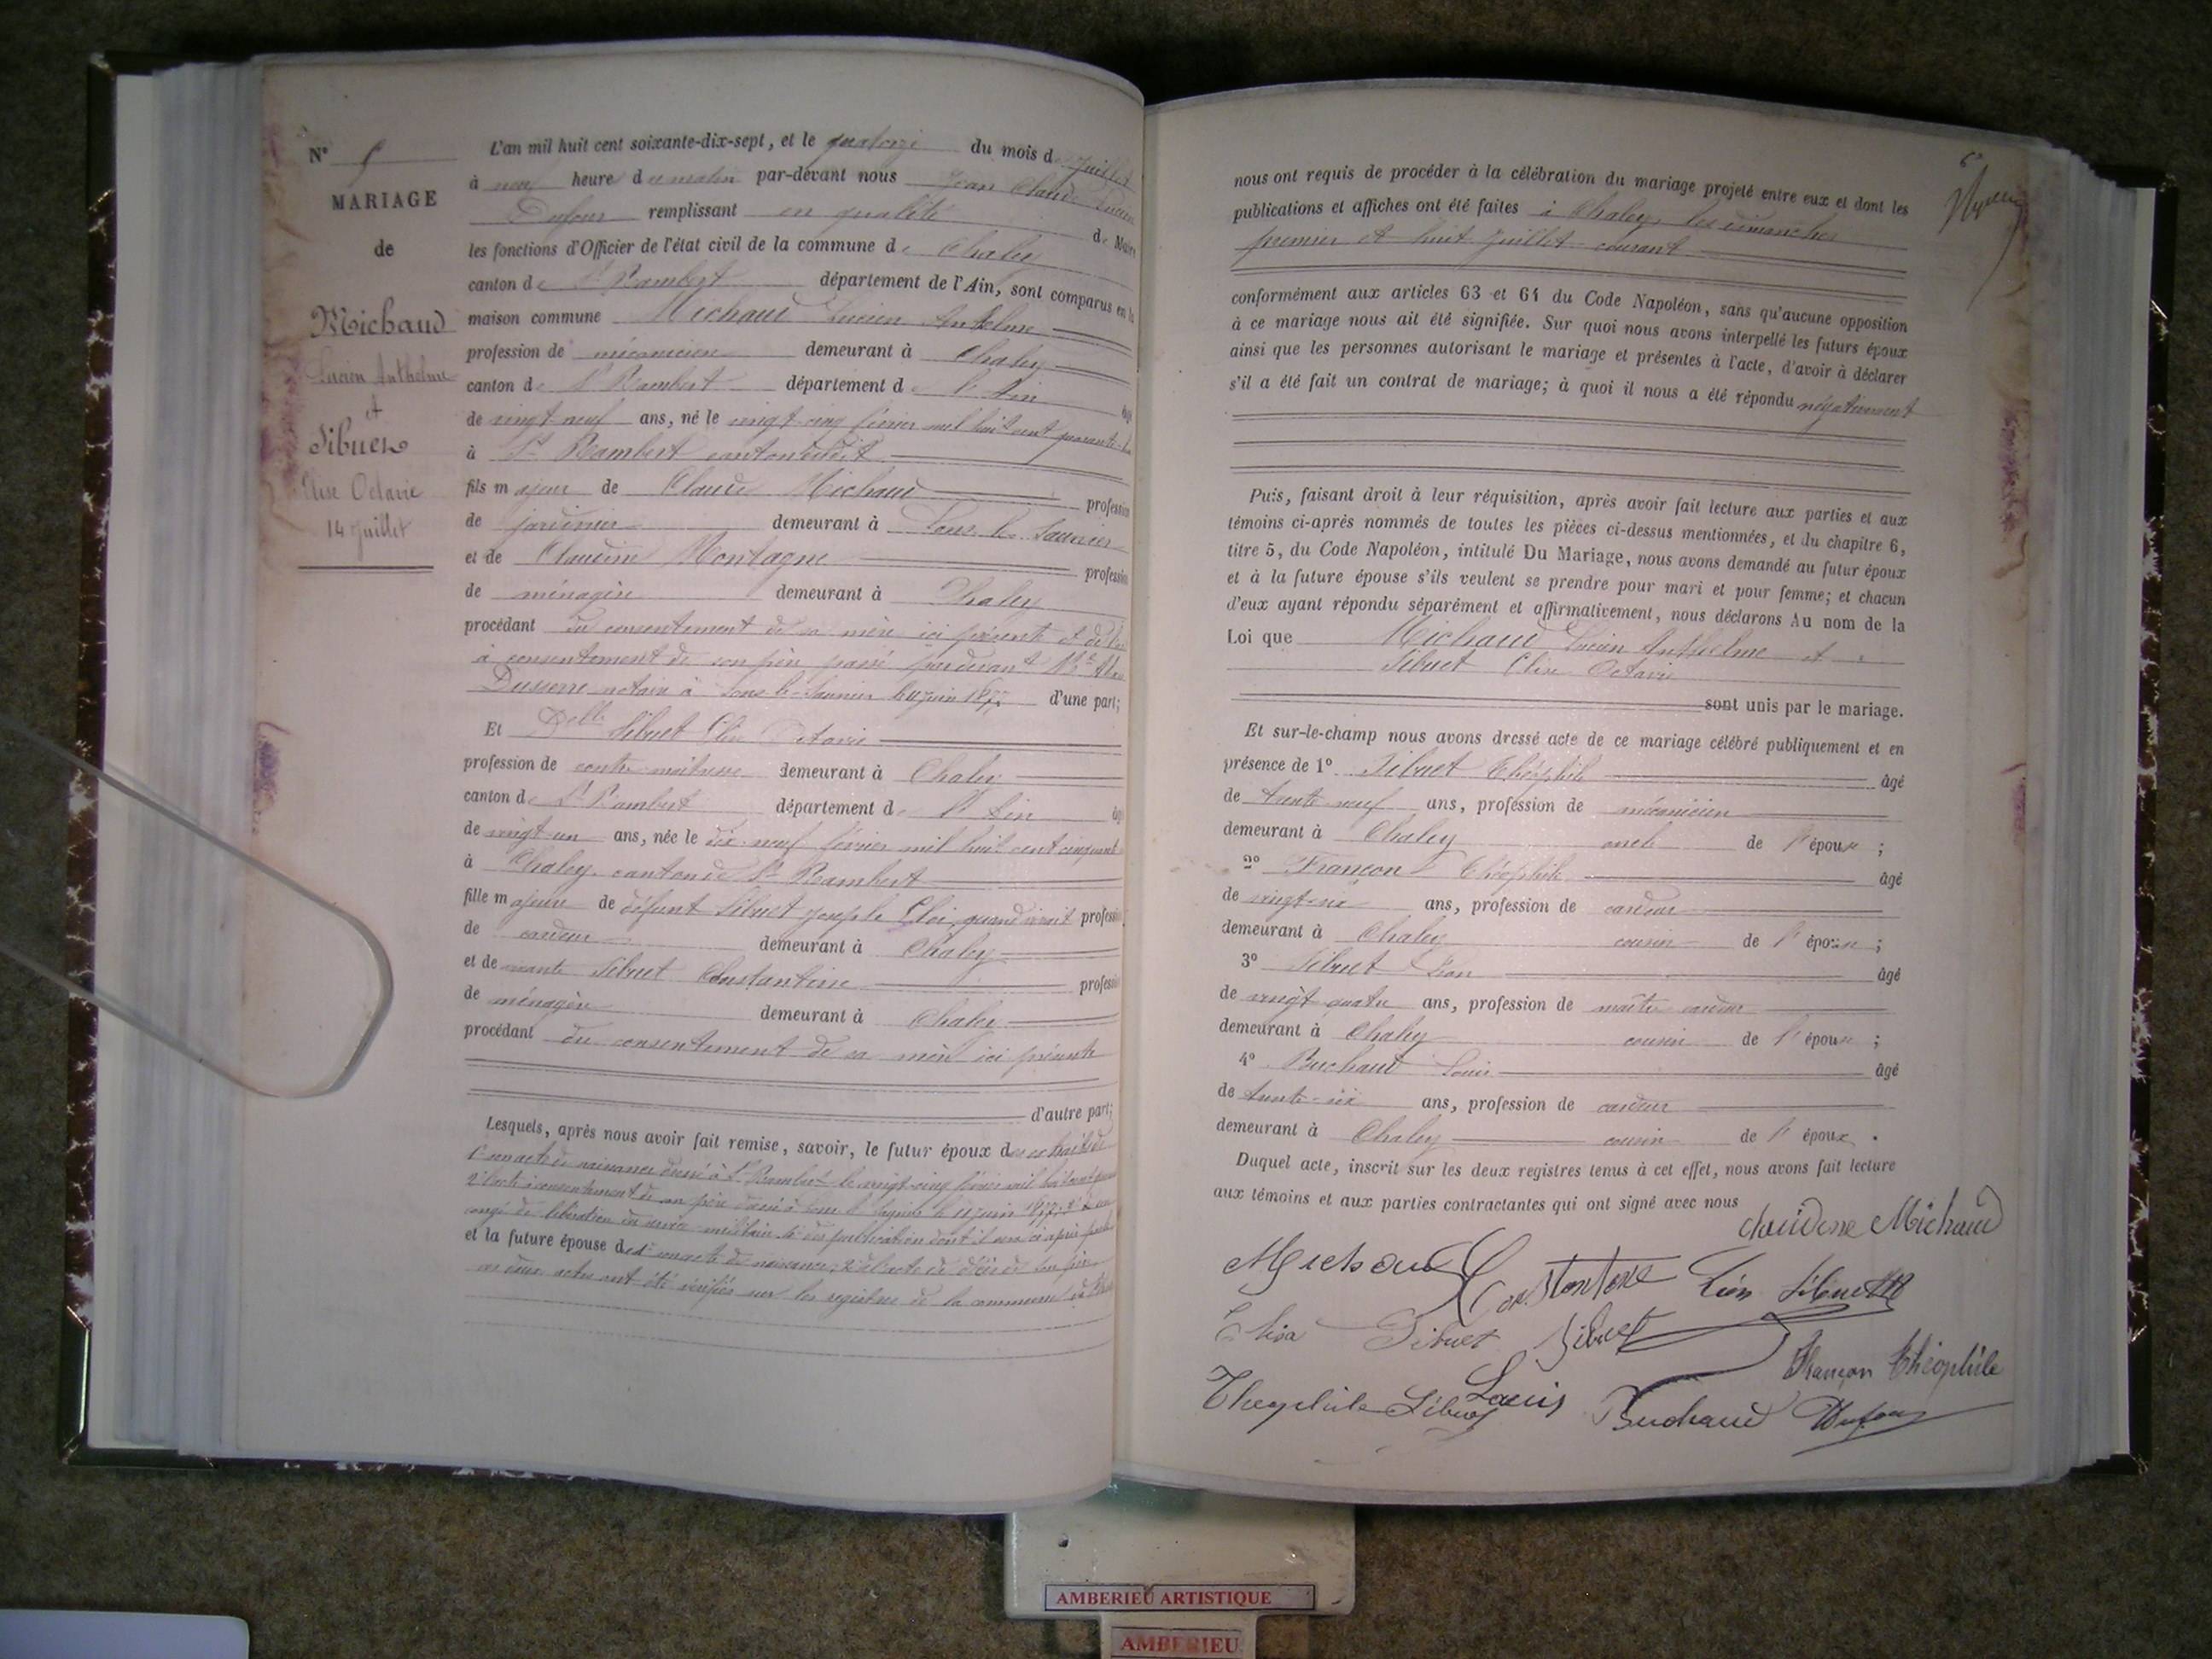 N° 5
MARIAGE
de
Michaud
Lucien Anthelme
et
Sibuet
Elise Octavie
14 Juillet
L'an mil huit cent soixante-dix-sept, et le quatorze du mois de Juillet
à neuf heure du matin par-devant nous Jean Claude Lucien
Dufour remplissant en qualité de Maire
les fonctions d'Officier de l'état civil de la commune de Chaley
canton de St Rambert département de l'Ain, sont comparus en la
maison commune Michaud Lucien Antelme
profession de mécanicien demeurant à Chaley
canton de St Rambert département de l'Ain âgé
de vingt-neuf ans, né le vingt-cinq février mil huit cent quarante-
à St Rambert canton susdit
fils majeur de Claude Michaud profession
de jardinier demeurant à Lons-le-Saunier
et de Claudine Montagne profession
de ménagère demeurant à Chaley
procédant du consentement de sa mère ici présente et de
à consentement de son père passé pardevant Me
Dusserre notaire à Lons-le-Saunier le 11 juin 1877. d'une part;
Et Delle Sibuet Elise Octavie
profession de contre-maîtresse demeurant à Chaley
canton de St Rambert département de l'Ain
de vingt-un ans, née le dix-neuf février mil huit cent cinquante
à Chaley canton de St Rambert
fille majeure de défunt Sibuet Joseph Eloi, quand vivait profession
de cardeur demeurant à Chaley
et de vivante Sibuet Constantine profession
de ménagère demeurant à Chaley
procédant du consentement de sa mère ici présente
d'autre part;
Lesquels, après nous avoir fait remise, savoir, le futur époux des extraits de
1° son acte de naissance dressé à St Rambert le vingt-cinq février mil huit cent
2° l'acte à consentement de son père dressé à Lons-le-Saunier le 11 juin 1877; 3° de son
congé de libération du service militaire 4° des publications dont il sera ci-après parlé
et la future épouse de 1° son acte de naissance, 2° l'acte de décès de son père
ces deux actes ont été vérifiés sur les registres de la commune de Chaley
nous ont requis de procéder à la célébration du mariage projeté entre eux et dont les
publications et affiches ont été faites à Chaley les dimanches
premier et huit Juillet courant
conformément aux articles 63 et 64 du Code Napoléon, sans qu'aucune opposition
à ce mariage nous ait été signifiée. Sur quoi nous avons interpellé les futurs époux
ainsi que les personnes autorisant le mariage et présentes à l'acte, d'avoir à déclarer
s'il a été fait un contrat de mariage; à quoi il nous a été répondu négativement
Puis, faisant droit à leur réquisition, après avoir fait lecture aux parties et aux
témoins ci-après nommés de toutes les pièces ci-dessus mentionnées, et du chapitre 6,
titre 5, du Code Napoléon, intitulé Du Mariage, nous avons demandé au futur époux
et à la future épouse s'ils veulent se prendre pour mari et pour femme; et chacun
d'eux ayant répondu séparément et affirmativement, nous déclarons Au nom de la
Loi que Michaud Lucien Anthelme et
Sibuet Elise Octavie
sont unis par le mariage.
Et sur-le-champ nous avons dressé acte de ce mariage célébré publiquement et en
présence de 1° Sibuet Théophile âgé
de trente-neuf ans, profession de mécanicien
demeurant à Chaley oncle de l'épouse ;
2° Françon Théophile âgé
de vingt-six ans, profession de cardeur
demeurant à Chaley cousin de l'épouse ;
3° Sibuet Léon âgé
de vingt quatre ans, profession de maître cardeur
demeurant à Chaley cousin de l'épouse ;
4° Buchaud Louis âgé
de trente-six ans, profession de cardeur
demeurant à Chaley cousin de l'époux.
Duquel acte, inscrit sur les deux registres tenus à cet effet, nous avons fait lecture
aux témoins et aux parties contractantes qui ont signé avec nous
Claudine Michaud
Michaud Constantine Léon Sibuet
Elisa Sibuet Sibuet
Françon Théophile
Theophile Sibuet Louis Buchaud Dufour
AMBERIEU ARTISTIQUE
AMBERIEU